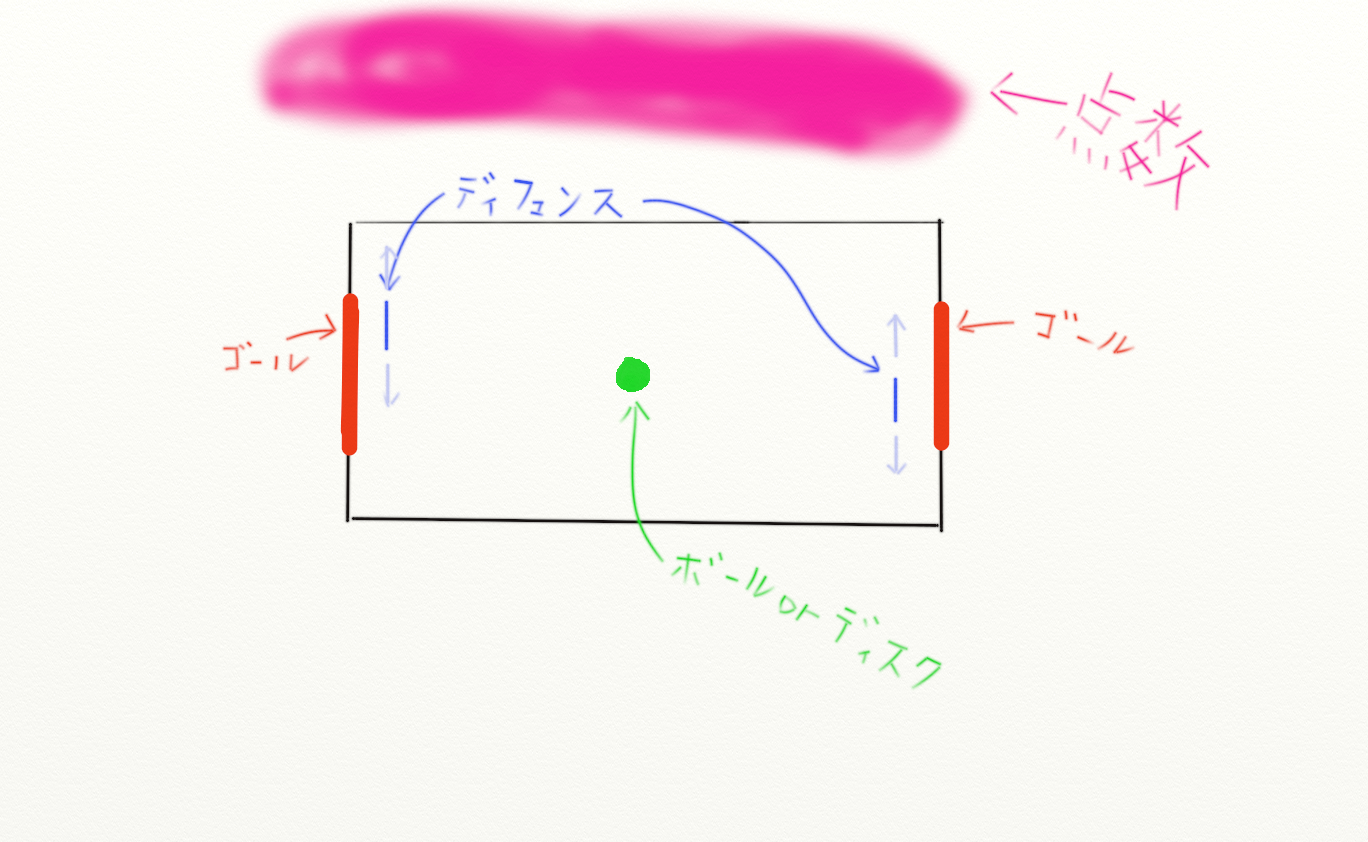 点数
ディフェンス
ゴール
ゴール
ボールorディスク